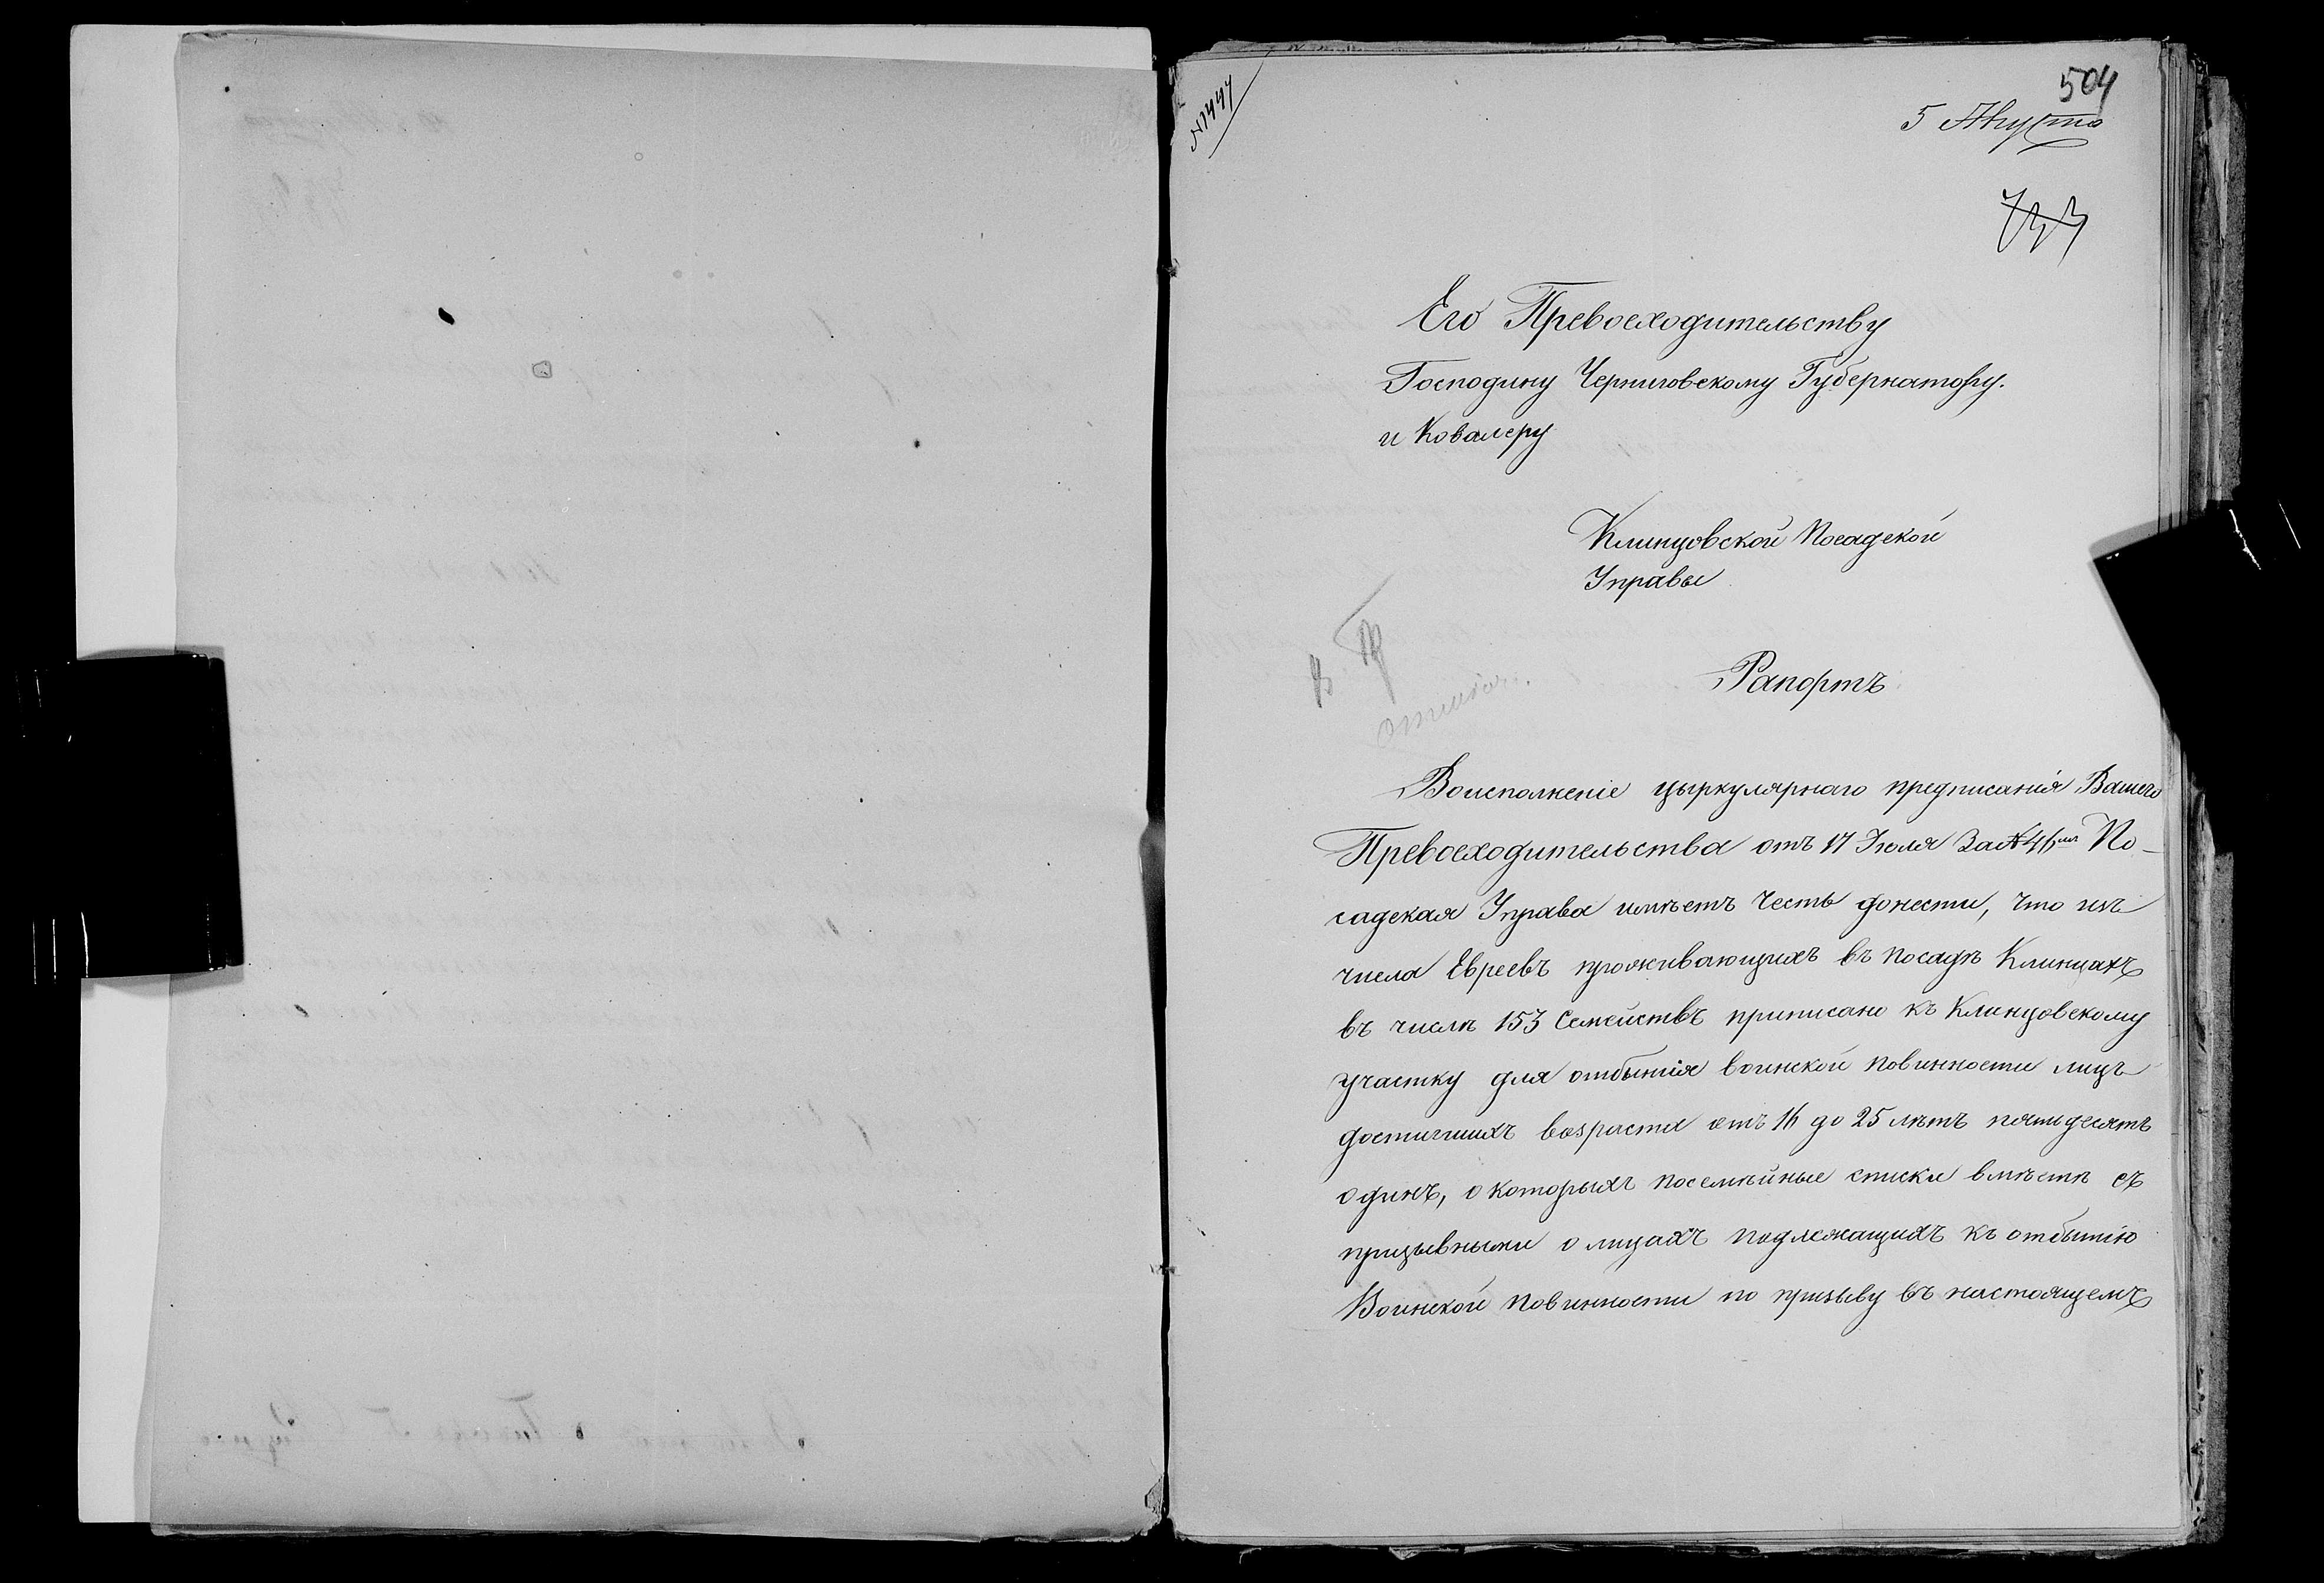 № 1447
504
5 Августа
Его Превосходительству
Господину Черниговскому Губернатору.
и Ковалеру
Клинцовской Посадской
Управы
Рапортъ
Воисполненіе цыркулярнаго предписанія Вашего
Превосходительства отъ 17 Июля За № 46 По-
садская Управа имѣетъ Честь донести, что изъ
числа Евреевъ проживающихъ въ посадѣ Клинцахъ
въ числѣ 153 Семействъ приписано къ Клинцовскому
участку для отбытія воинской повинности лицъ
достигшихъ возраста отъ 16 до 25 лѣтъ пятьдесятъ
одинъ, о которыхъ посемѣйные списки вмѣстѣ съ
призывными о лицахъ подлежащихъ къ отбытію
Воинской повинности по призыву въ настоящемъ